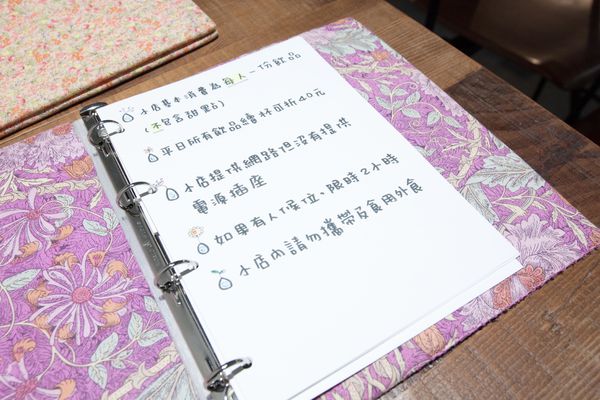 小店基本消費為每人一份飲品
(不包含甜點)
平日所有飲品續杯可折40元
小店提供網路但沒有提供
電源插座
如果有人候位、限時2小時
小店內請勿攜帶及食用外食